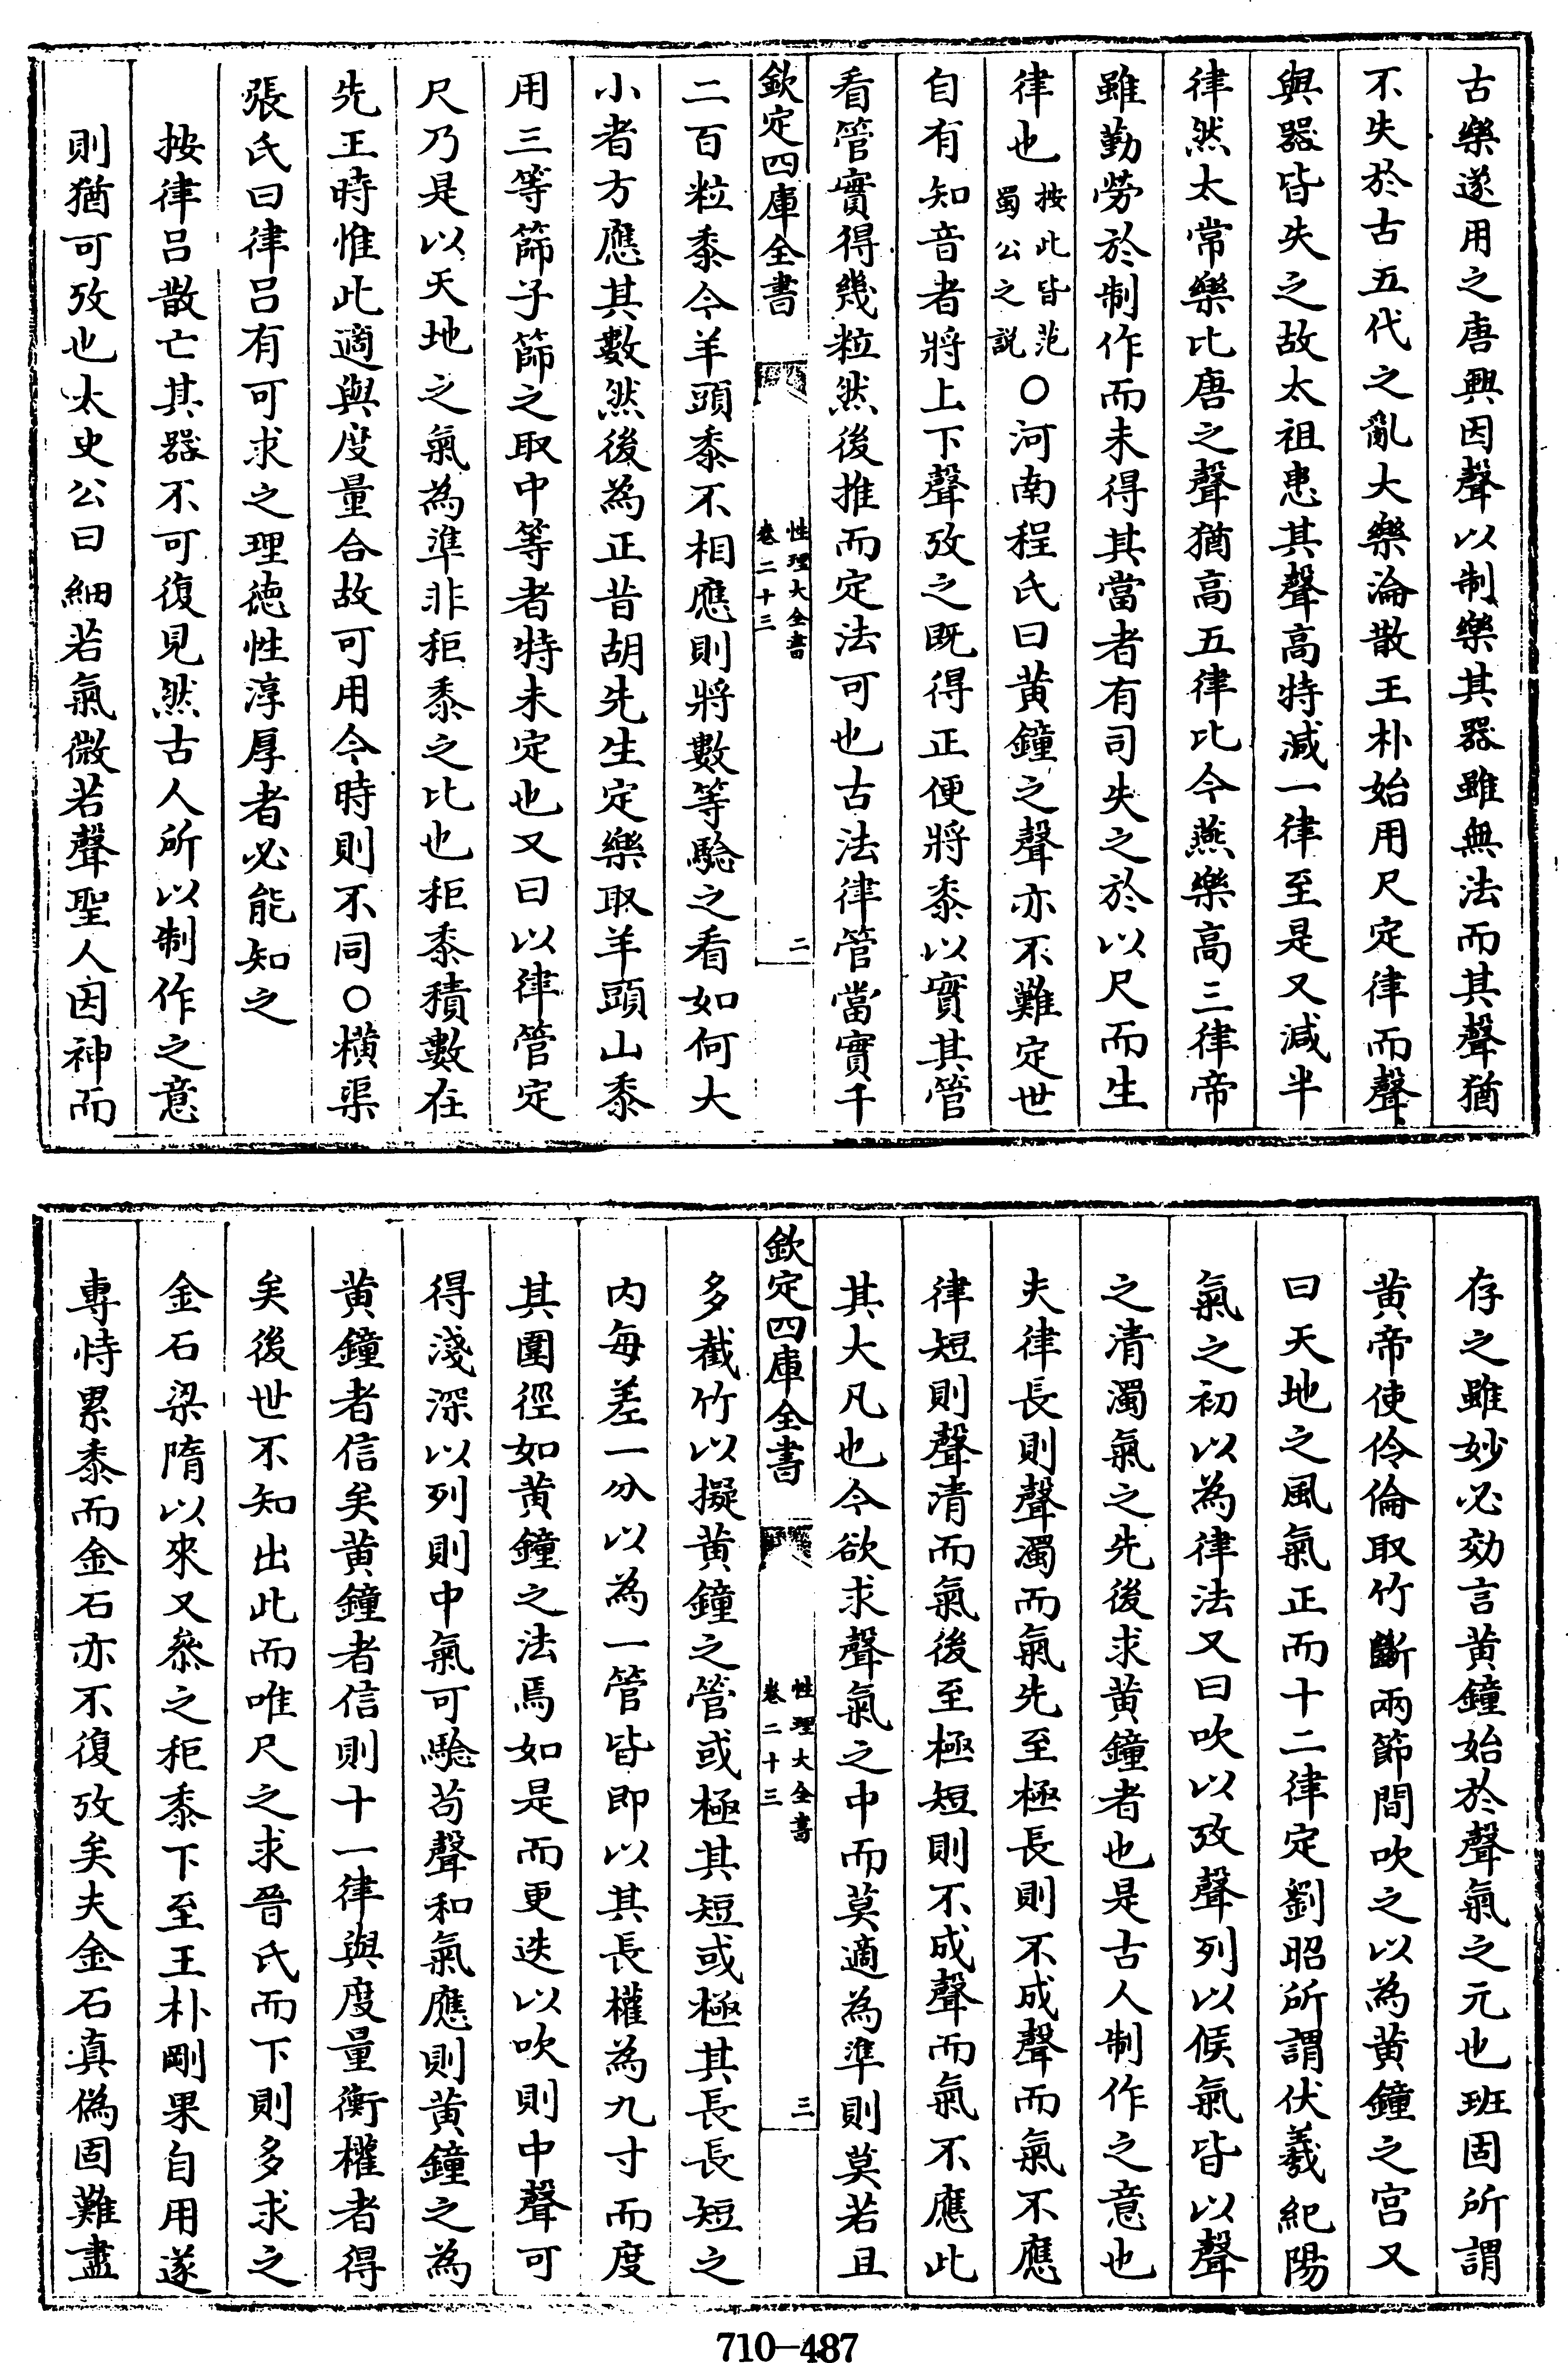 古樂遂用之唐興因聲以制樂其器雖無法而其聲猶
不失於古五代之亂大樂淪散王朴始用尺定律而聲
與器皆失之故太祖患其聲高特減一律至是又減半
律然太常樂比唐之聲猶高五律比今燕樂高三律帝
雖勤勞於制作而未得其當者有司失之於以尺而生
律也按此皆范蜀公之說○河南程氏曰黃鐘之聲亦不難定世
自有知音者將上下聲攷之既得正便將黍以實其管
看管實得幾粒然後推而定法可也古法律管當實千
欽定四庫全書
性理大全書
卷二十三
二
二百粒黍今羊頭黍不相應則將數等驗之看如何大
小者方應其數然後為正昔胡先生定樂取羊頭山黍
用三等篩子篩之取中等者特未定也又曰以律管定
尺乃是以天地之氣為準非秬黍之比也秬黍積數在
先王時惟此適與度量合故可用今時則不同○橫渠
張氏曰律呂有可求之理德性淳厚者必能知之
按律呂散亡其器不可復見然古人所以制作之意
則猶可攷也太史公曰細若氣微若聲聖人因神而
存之雖妙必効言黃鐘始於聲氣之元也班固所謂
黃帝使伶倫取竹斷兩節間吹之以為黃鐘之宫又
曰天地之風氣正而十二律定劉昭所謂伏羲紀陽
氣之初以為律法又曰吹以攷聲列以候氣皆以聲
之清濁氣之先後求黃鐘者也是古人制作之意也
夫律長則聲濁而氣先至極長則不成聲而氣不應
律短則聲清而氣後至極短則不成聲而氣不應此
其大凡也今欲求聲氣之中而莫適為準則莫若且
欽定四庫全書
性理大全書
卷二十三
三
多截竹以擬黃鐘之管或極其短或極其長長短之
内每差一分以為一管皆即以其長權為九寸而度
其圍徑如黃鐘之法焉如是而更迭以吹則中聲可
得淺深以列則中氣可驗苟聲和氣應則黃鐘之為
黃鐘者信矣黃鐘者信則十一律與度量衡權者得
矣後世不知出此而唯尺之求晉氏而下則多求之
金石梁隋以來又叅之秬黍下至王朴剛果自用遂
專恃累黍而金石亦不復攷矣夫金石真偽固難盡
710-487